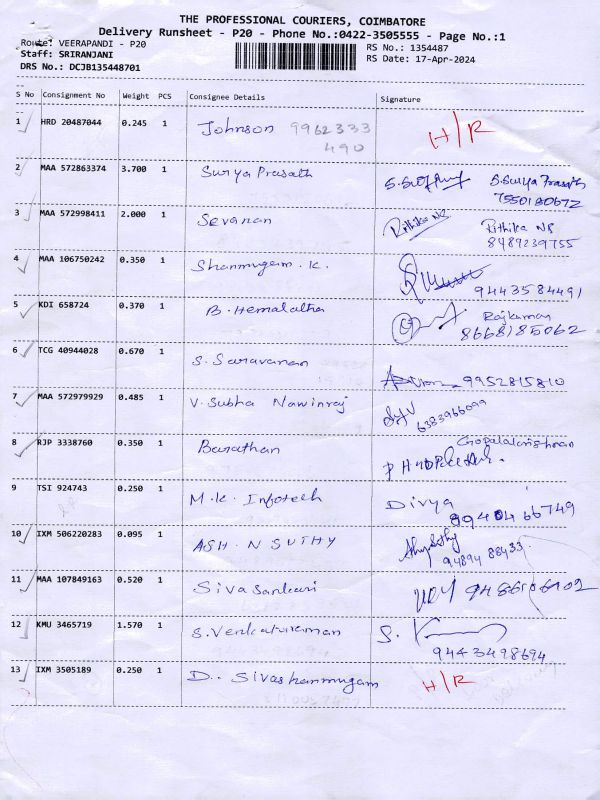 THE PROFESSIONAL COURIERS, COIMBATORE
Delivery Runsheet - P20 - Phone No.:0422-3505555 - Page No.:1
Route: VEERAPANDI - P20 RS No.: 1354487
Staff: SRIRANJANI RS Date: 17-Apr-2024
DRS No.: DCJB135448701
S No Consignment No Weight PCS Consignee Details Signature
1 HRD 20487044 0.245 1 Johnson 9962333 H/R
490
2 MAA 572863374 3.700 1 Surya Prasath S. Surya Prasath
7550180672
3 MAA 572998411 2.000 1 Sevanan Rithika NR Rithika NR
8489239755
4 MAA 106750242 0.350 1 Shanmugam . K.
9443584491
5 KDI 658724 0.370 1 B. Hemalatha Rajkumar
8668185062
6 TCG 40944028 0.670 1 S. Saravanan
9952815810
7 MAA 572979929 0.485 1 V. Subha Nawinraj
6383966099
8 RJP 3338760 0.350 1 Barathan Gopalakrishnan
9 TSI 924743 0.250 1 M.K. Infotech Divya
8940466749
10 IXM 506220283 0.095 1 ASH. N SUTHY
94894 88433
11 MAA 107849163 0.520 1 Siva Sankari
12 KMU 3465719 1.570 1 S. Venkatraman S.
9443498694
13 IXM 3505189 0.250 1 D. Sivashanmugam H/R